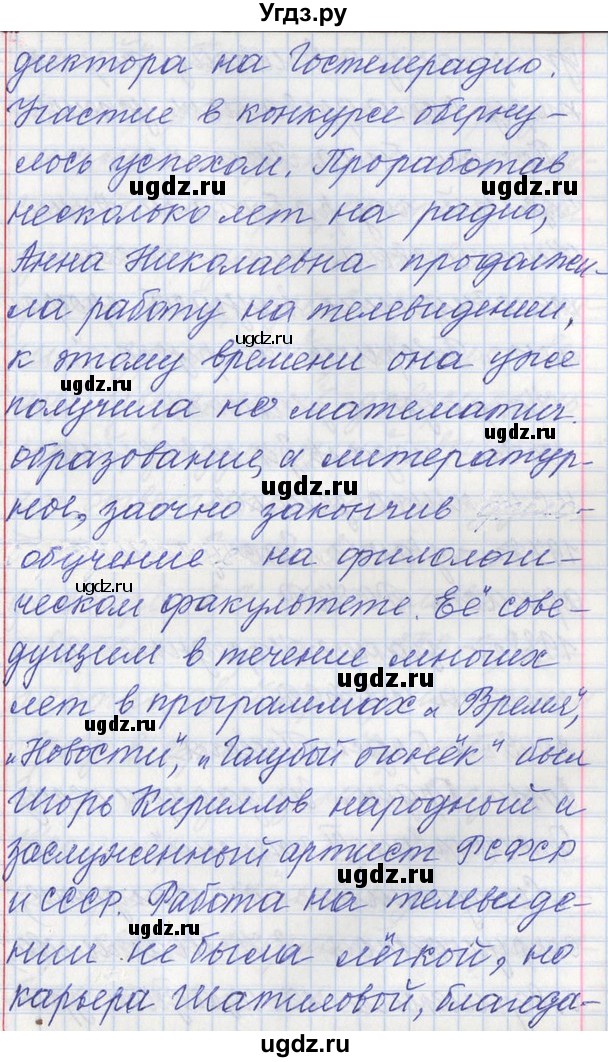 Угдз.ру
диктора на Гостелерадио.
Участие в конкурсе оберну-
лось успехом. Проработав
ugdz.ru ugdz.ru
несколько лет на радио,
Анна Николаевна продолжи-
ла работу на телевидении,
ugdz.ru
к этому времени она уже
ugdz.ru
получила не математич.
ugdz.ru
образование, а литератур-
ugdz.ru
ное, заочно закончив
обучение на филологи-
ugdz.ru
ческом факультете. Её сове-
дущим в течение многих
ugdz.ru
лет в программах „Время",
ugdz.ru
„Новости", „Голубой огонёк" был
Игорь Кириллов народный и
заслуженный артист РСФСР
ugdz.ru
и СССР. Работа на телевиде-
ugdz.ru
нии не была лёгкой, но
карьера Шатиловой, благода-
ugdz.ru